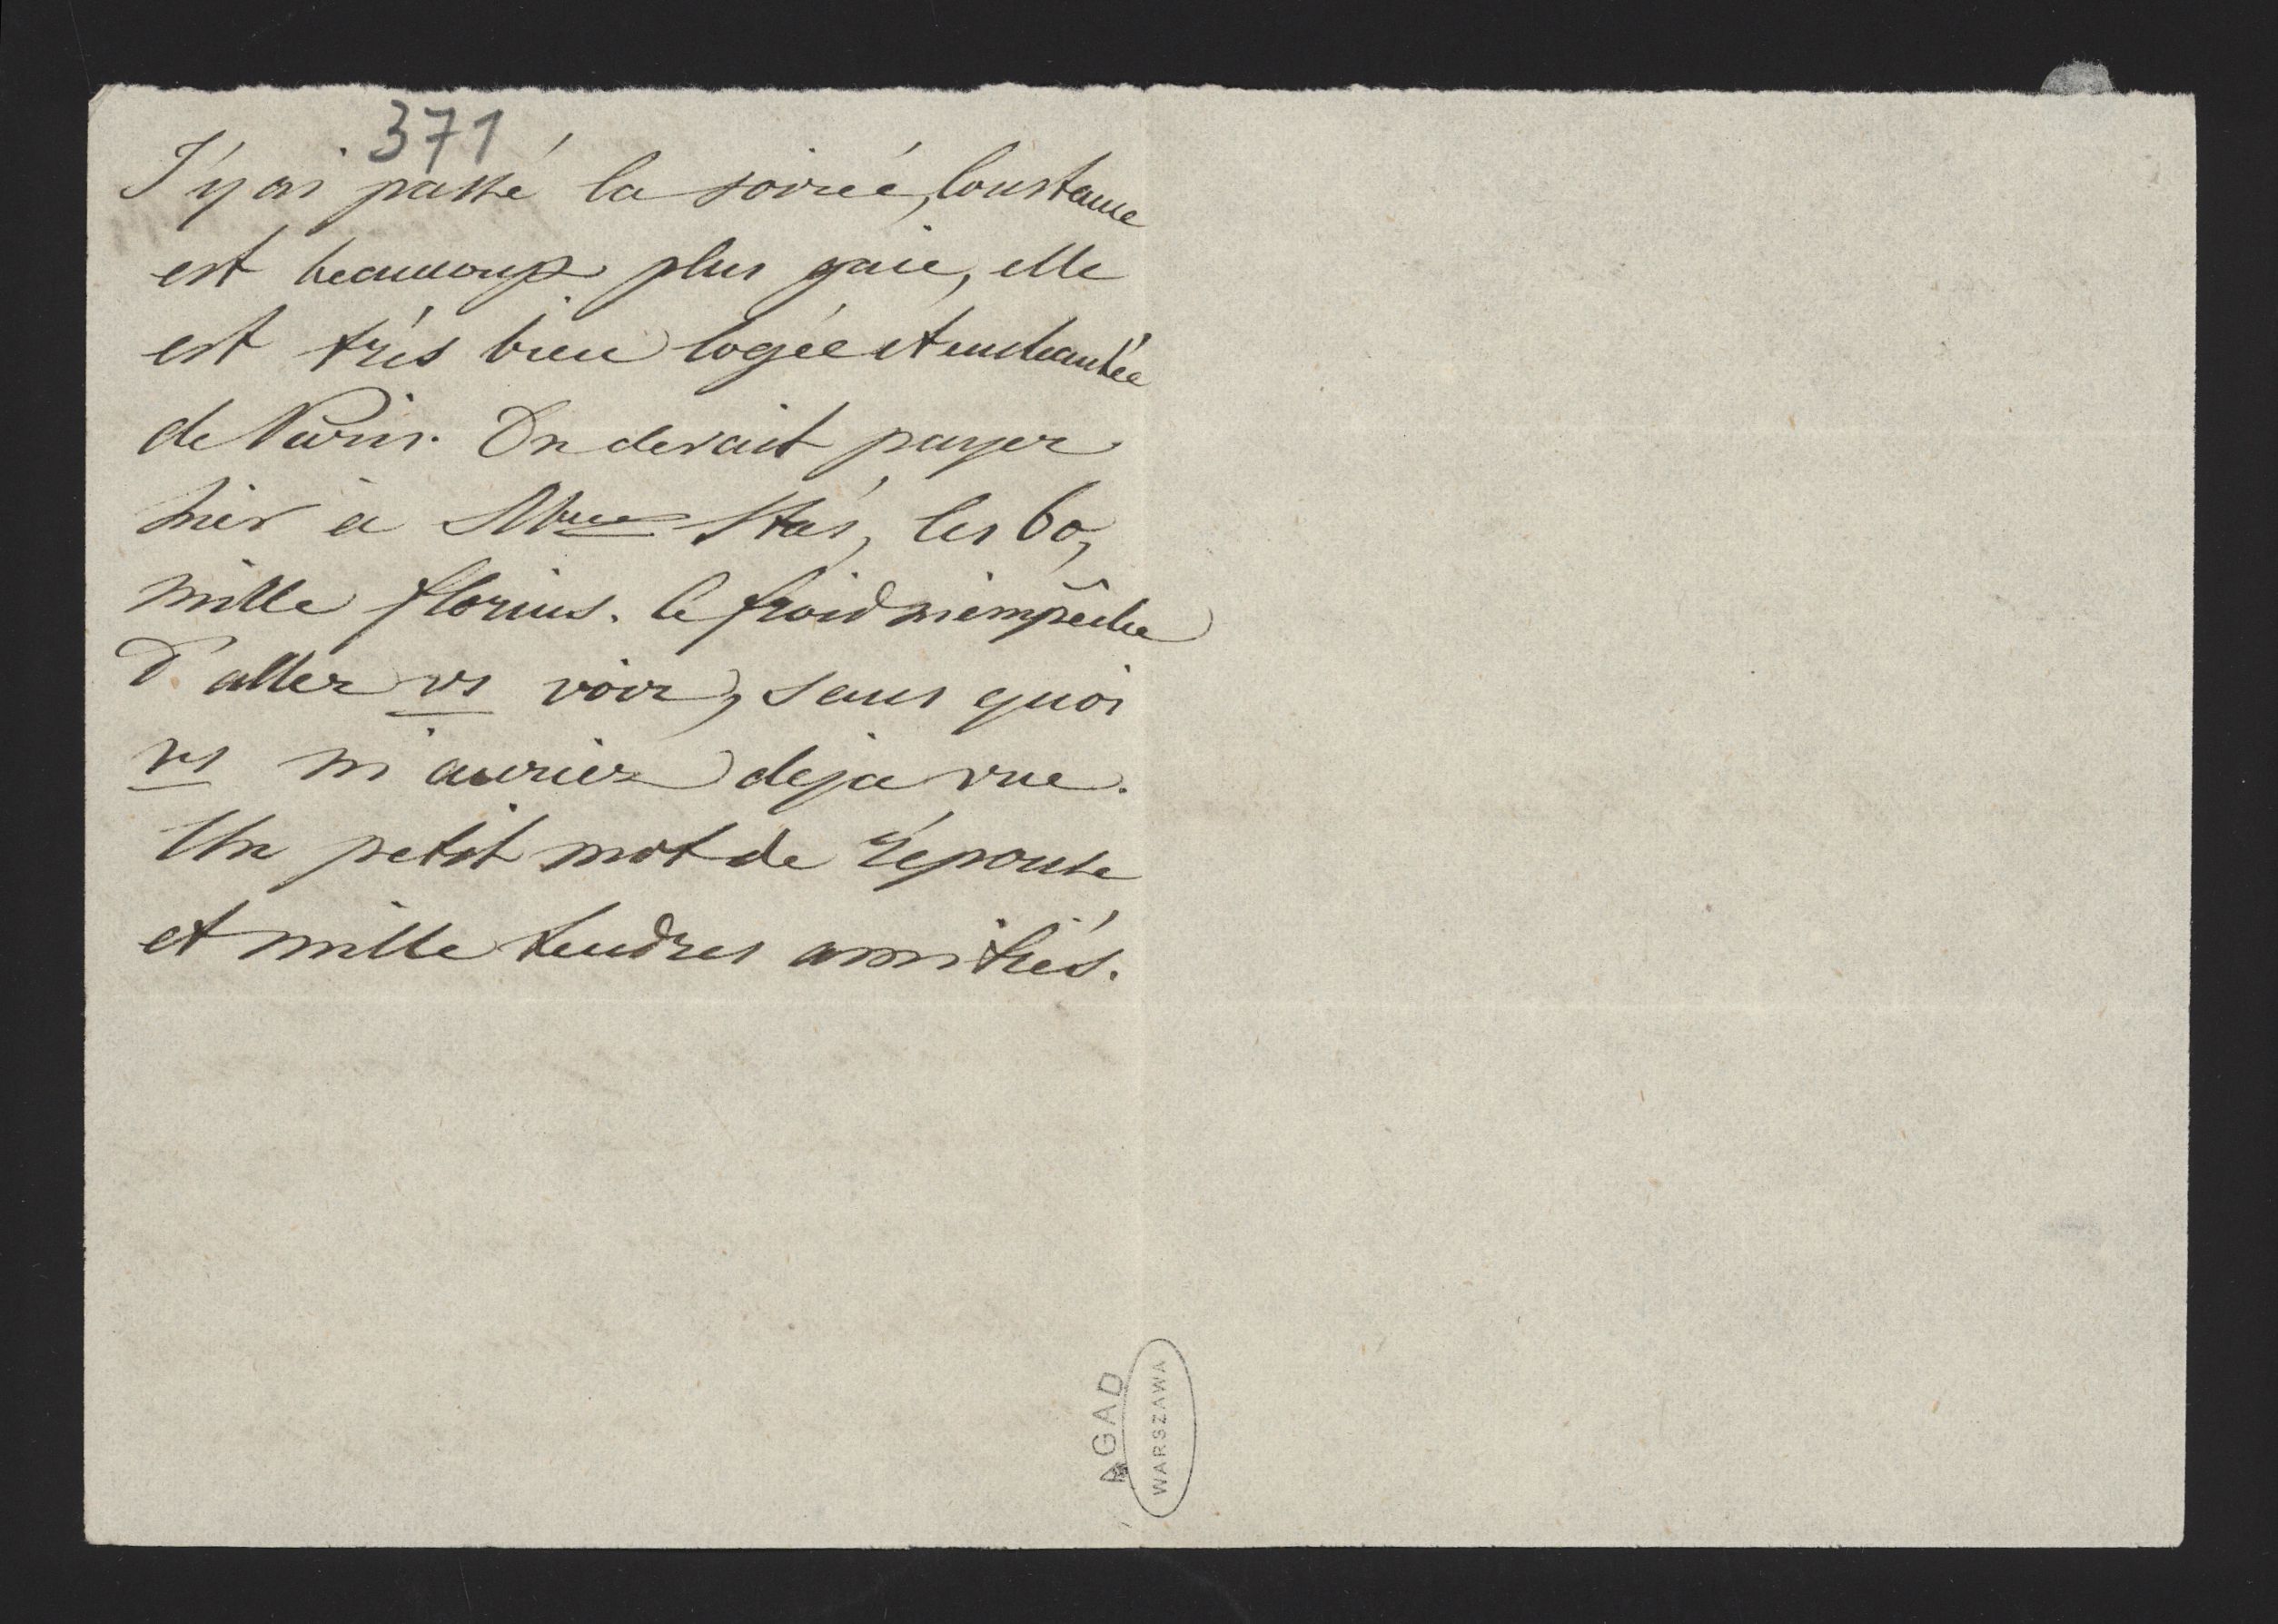 371
J'y ai passé la soirée, Constance
est beaucoup plus gaie, elle
est très bien logée et enchantée
de Paris. On devait payer
hier à Mme Stas, les 60,
mille florins. le froid m'empêche
d'aller vs voir, sans quoi
vs m'auriez deja vue.
Un petit mot de réponse
et mille tendres amitiés.
AGAD
WARSZAWA